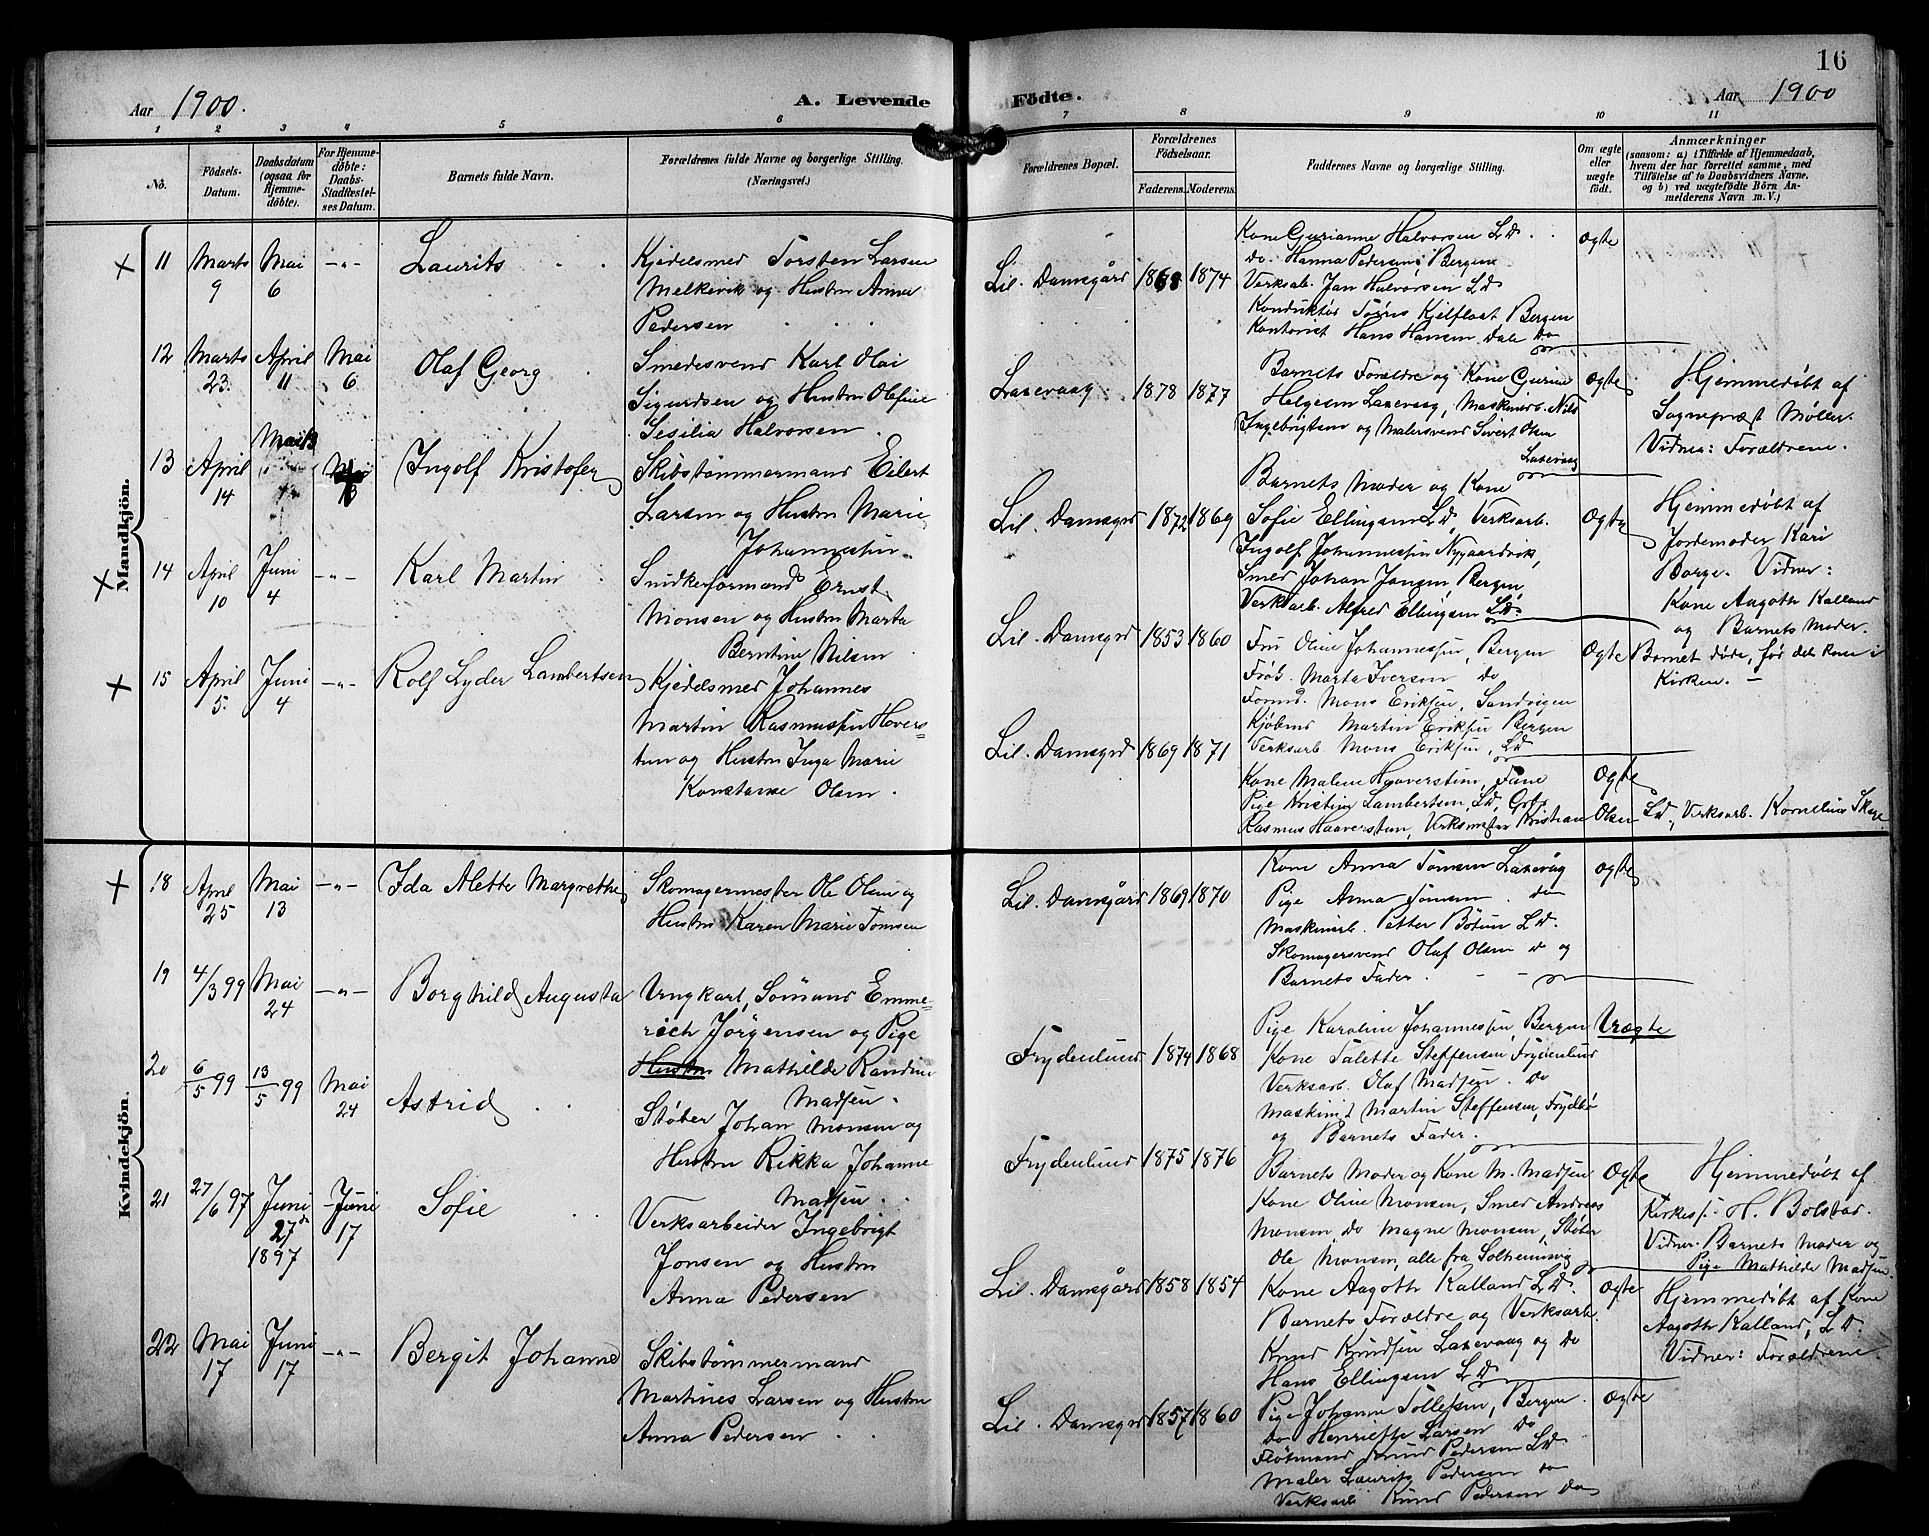 16
Aar 1900.
A. Levende Födte.
Aar 1900
1 2 3 4 5 6 7 8 9 10 11
No.
Födsels-Datum.
Daabsdatum (ogsaa for Hjemme-döbte).
For Hjemme-döbte: Daabs-Stadfæstel-ses Datum.
Barnets fulde Navn.
Forældrenes fulde Navne og borgerlige Stilling.
(Næringsvei.)
Forældrenes Bopæl.
Forældrenes Födselsaar.
Faderens. Moderens.
Faddernes Navne og borgerlige Stilling.
Om ægte eller uægte födt.
Anmærkninger
(saasom: a) i Tilfælde af Hjemmedaab,
hvem der har forrettet samme, med
Tilföielse af to Daabsvidners Navne,
og b) ved uægtefödte Börn An-
melderens Navn m. V.)
Mandkjön.
11 Marts 9 Mai 6 -„- Laurits
Kjedelsmed Torsten Larsen
Melkevik og Hustru Anna
Pedersen
Lil. Damsgård 1868 1874
Kone Gurianne Halvorsen LD.
do. Hanna Pedersen, Bergen
Verksarb. Jan Halvorsen LD
Konduktør Kjelfloat Bergen
Kontorist Hans Hansen Dale Do
Ogte
12 Marts 23 April 11 Mai 6 Olaf Georg
Smedesvend Karl Olai
Sigurdsen og Hustru Olefine
Sesilia Halvorsen
Laxevaag 1878 1877
Barnets Forældre og Kone Gurine
Helgesen Laxevaag, Maskinarb. Nils
Ingebrigtsen og Malersvend Sivert Olsen
Laxevaag
Ogte
Hjemmedøbt af
Sognepræst Møller.
Vidner: Forældrene.
13 April 14 Mai 13 Ingolf Kristofer
Skibstømmermand Eilert
Larsen og Hustru Marie
Johannessen
Lil. Damsgrd 1872 1869
Barnets Moder og Kone
Sofie Ellingsen LD, Verksarb.
Ingolf Johannessen Nygaardsvik,
Smed Johan Jansen, Bergen,
Verksarb. Alfred Ellingsen LD.
Ogte
Hjemmedøbt af
Jordemoder Kari
Borge. Vidner:
Kone Aagoth Kalland
og Barnets Moder.
14 April 10 Juni 4 -„- Karl Martin
Snidkerformand Ernst
Monsen og Hustru Marta
Berntine Nilsen
Lil. Damsgrd 1853 1860
Fru Oline Johannessen, Bergen
Frøk. Marta Iversen do
Formd. Mons Eriksen, Sandvigen
Kjøbmd Martin Eriksen Bergen
Verksarb Mons Eriksen, LD
Ogte
Barnet døde, før det kom i
Kirken. -
15 April 5 Juni 4 -„- Rolf Lyder Lambertsen
Kjedelsmed Johannes
Martin Rasmussen Hovers=
ten og Hustru Inga Marie
Konstanse Olsen.
Lil. Damsgrd 1869 1871
Kone Malene Haaversten, Fane
Pige Kristine Lambertsen, LD, Grb.
Rasmus Haaversten, Verksmester Kristian Olsen LD., Verksarb. Kornelius Skage
Ogte
Kvindekjön.
18 April 25 Mai 13 -„- Ida Alette Margrethe
Skomagermester Ole Olsen og
Hustru Karen Marie Tomsen
Lil. Damsgård 1869 1870
Kone Anna Tomsen Laxevåg
Pige Anna Tomsen do
Maskinarb. Petter Bötun LD.
Skomagersvend Olaf Olsen do og
Barnets Fader.
Ogte
19 4/3 99 Mai 24 -„- Borghild Augusta
Ungkarl, Sømand Emme=
rich Jørgensen og Pige
Hustru Mathilde Randine
Madsen.
Frydenlund 1874 1868
Pige Karoline Johannessen, Bergen
Kone Talette Steffensen, Frydenlund
Verksarb. Olaf Madsen. do
Maskinist Martin Steffensen, Frydbø
og Barnets Fader.
Uægte
20 6/5 99 13/5 99 Mai 24 Astrid
Støber Johan Monsen og
Hustru Rikka Johanne
Madsen.
Frydenlund 1875 1876
Barnets Moder og Kone M. Madsen
Kone Oline Monsen, Smed Andreas
Monsen, do Magne Monsen, Støber
Ole Monsen, alle fra Solheimsvig
Ogte
Hjemmedøbt af
Kirkes. H. Bolstad.
Vidner: Barnets Moder og
Pige Mathilde Madsen.
21 27/6 97 Juni 27de 1897 Juni 17 Sofie
Verksarbeider Ingebrigt
Jonsen og Hustru
Anna Pedersen
Lil. Damsgård 1858 1854
Kone Aagoth Kalland LD.
Barnets Forældre og Verksarb.
Knud Knudsen Laxevaag og do
Hans Ellingsen LD
Ogte
Hjemmedøbt af Kone
Aagoth Kalland, LD.
Vidner: Forældrene
22 Mai 17 Juni 17 -„- Bergit Johanne
Skibstømmermand
Martines Larsen og Hustru
Anna Pedersen
Lil. Damsgrd 1857 1860
Pige Johanne Tollefsen, Bergen.
do Henriette Larsen do
Fløtmand Knud Pedersen LD
Maler Laurits Pedersen do
Verksarb Knud Pedersen do
Ogte